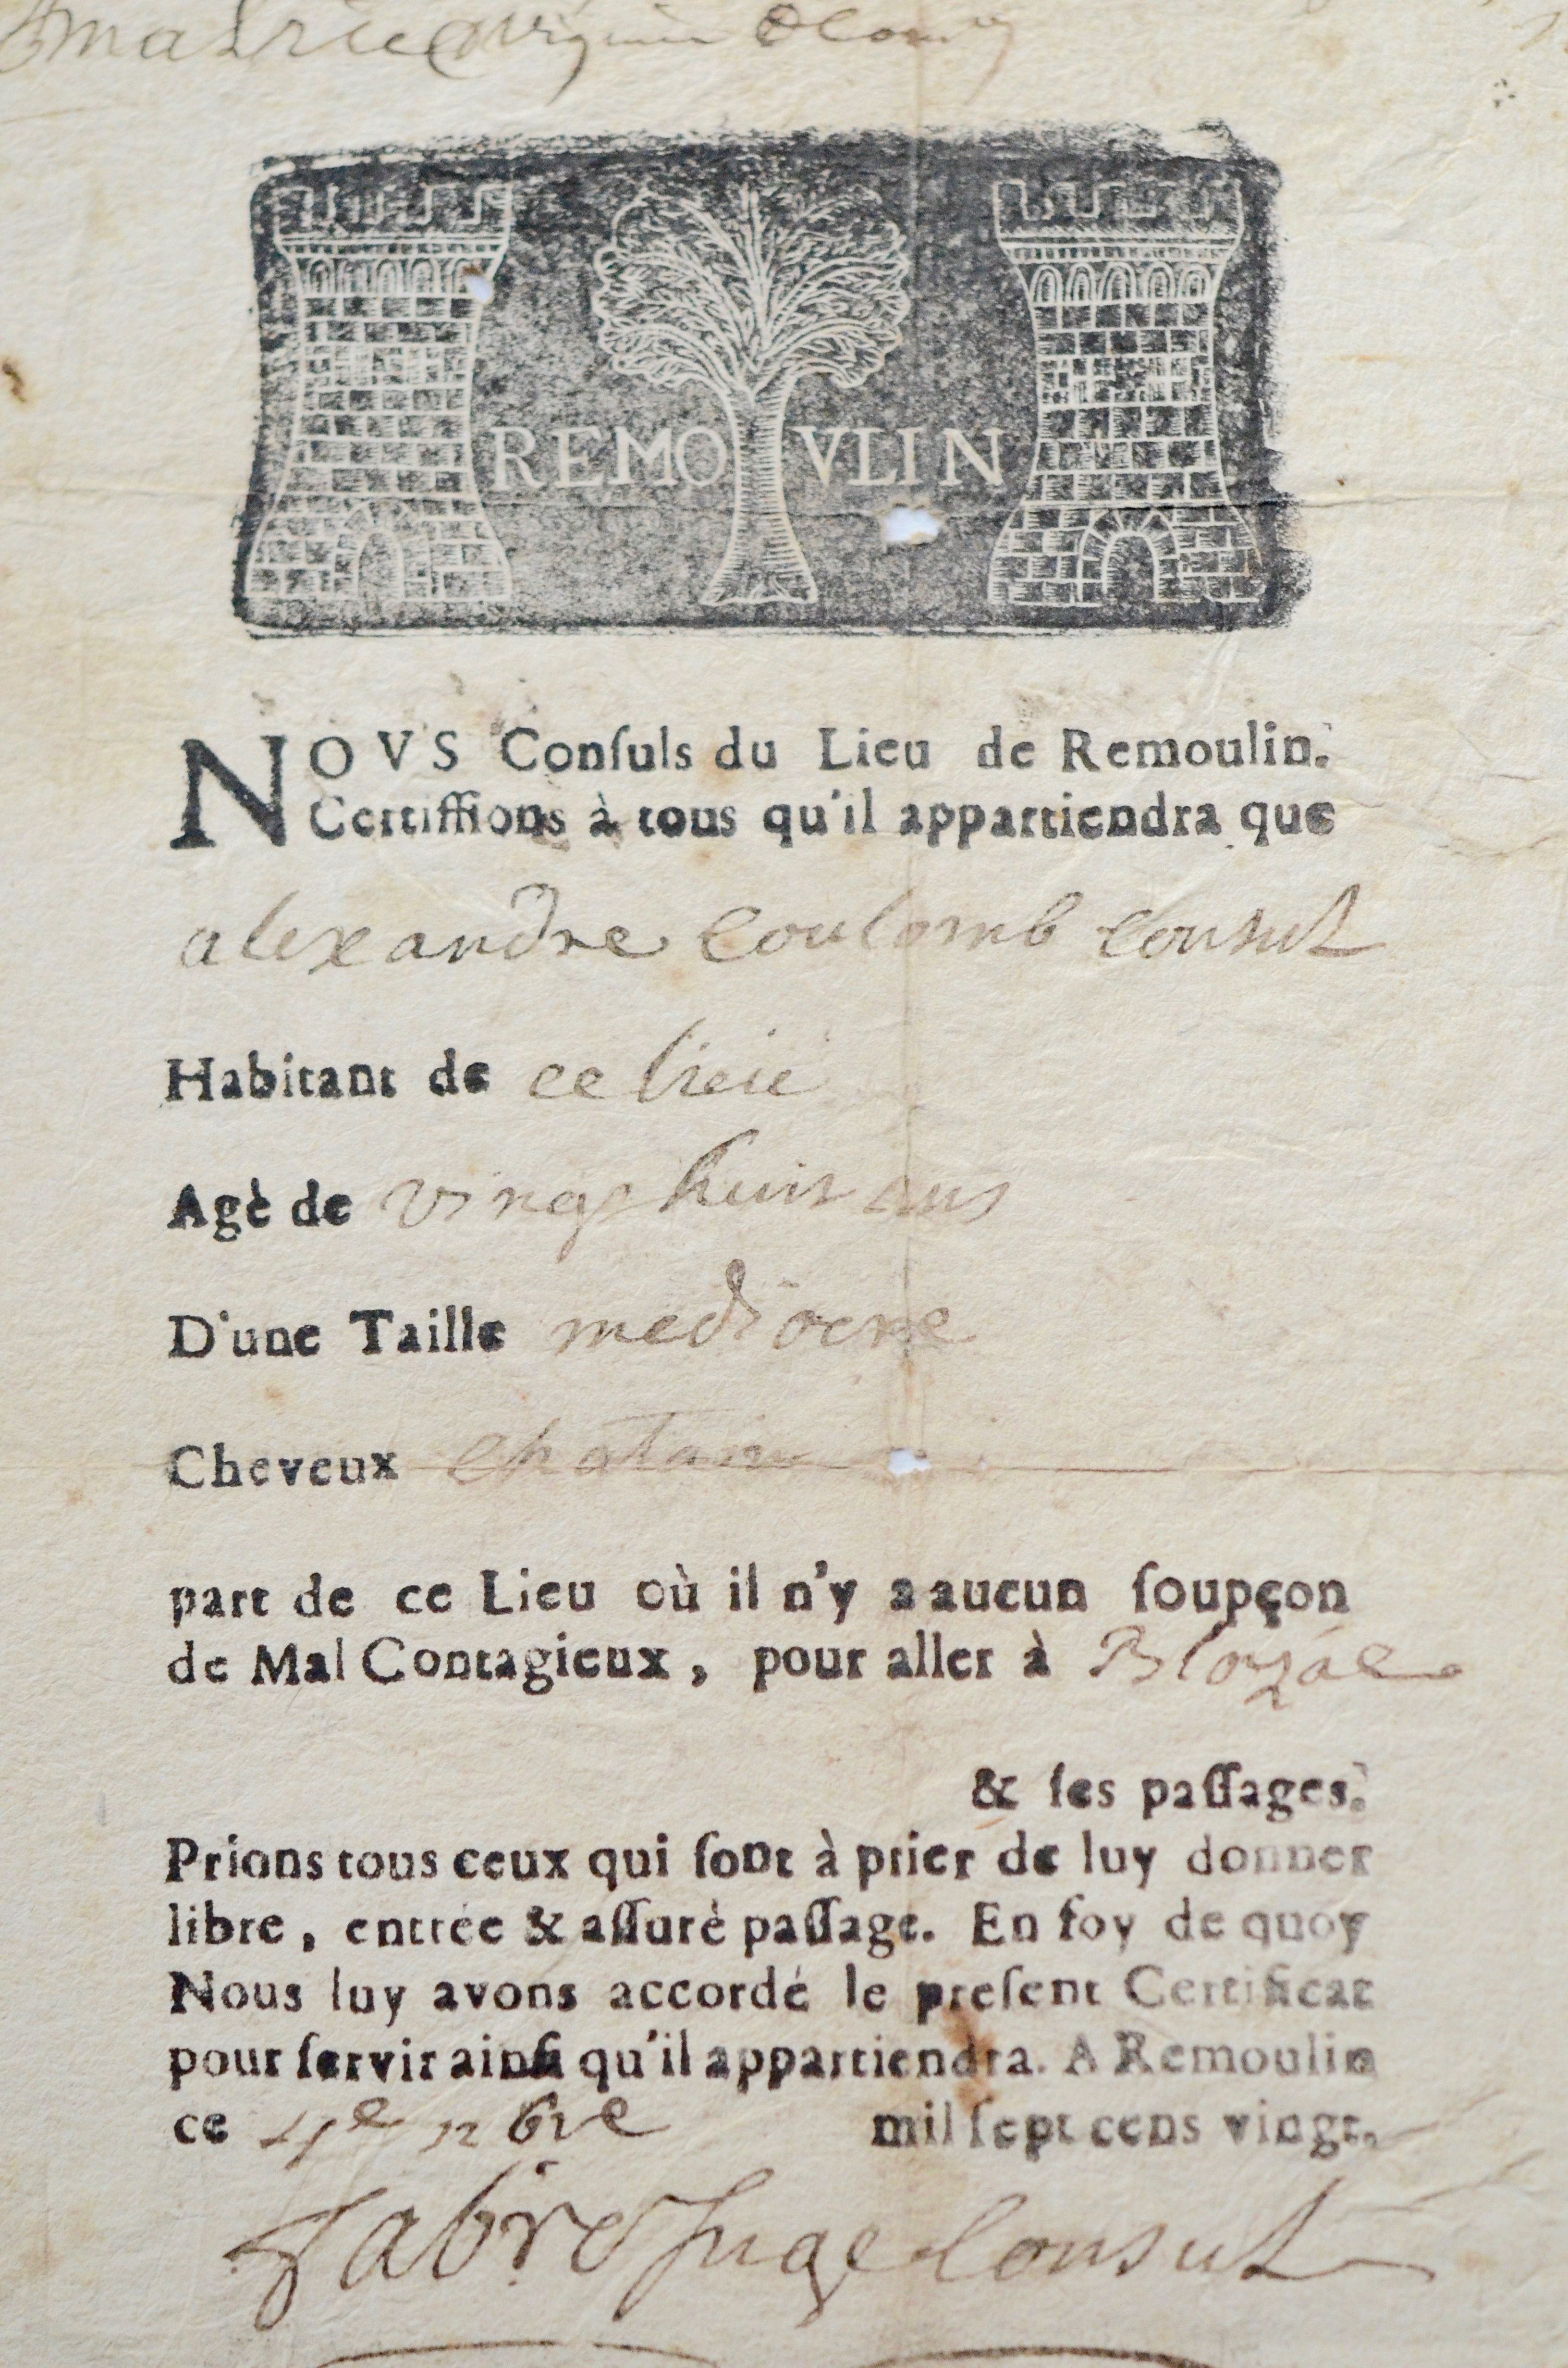 REMOVLIN
NOVS Conſuls du Lieu de Remoulin.
Certiffions à tous qu'il appartiendra que
alexandre Coulomb Consul
Habitant de ce lieu
Agè de vingt huit ans
D'une Taille mediocre
Cheveux chatain
part de ce Lieu où il n'y a aucun ſoupçon
de Mal Contagieux, pour aller à
& ſes paſſages.
Prions tous ceux qui ſont à prier de luy donner
libre, entrée & aſſurè paſſage. En foy de quoy
Nous luy avons accordé le preſent Certificat
pour ſervir ainſi qu'il appartiendra. A Remoulin
ce 4e 9bre mil ſept cens vingt.
Fabre Juge Consul